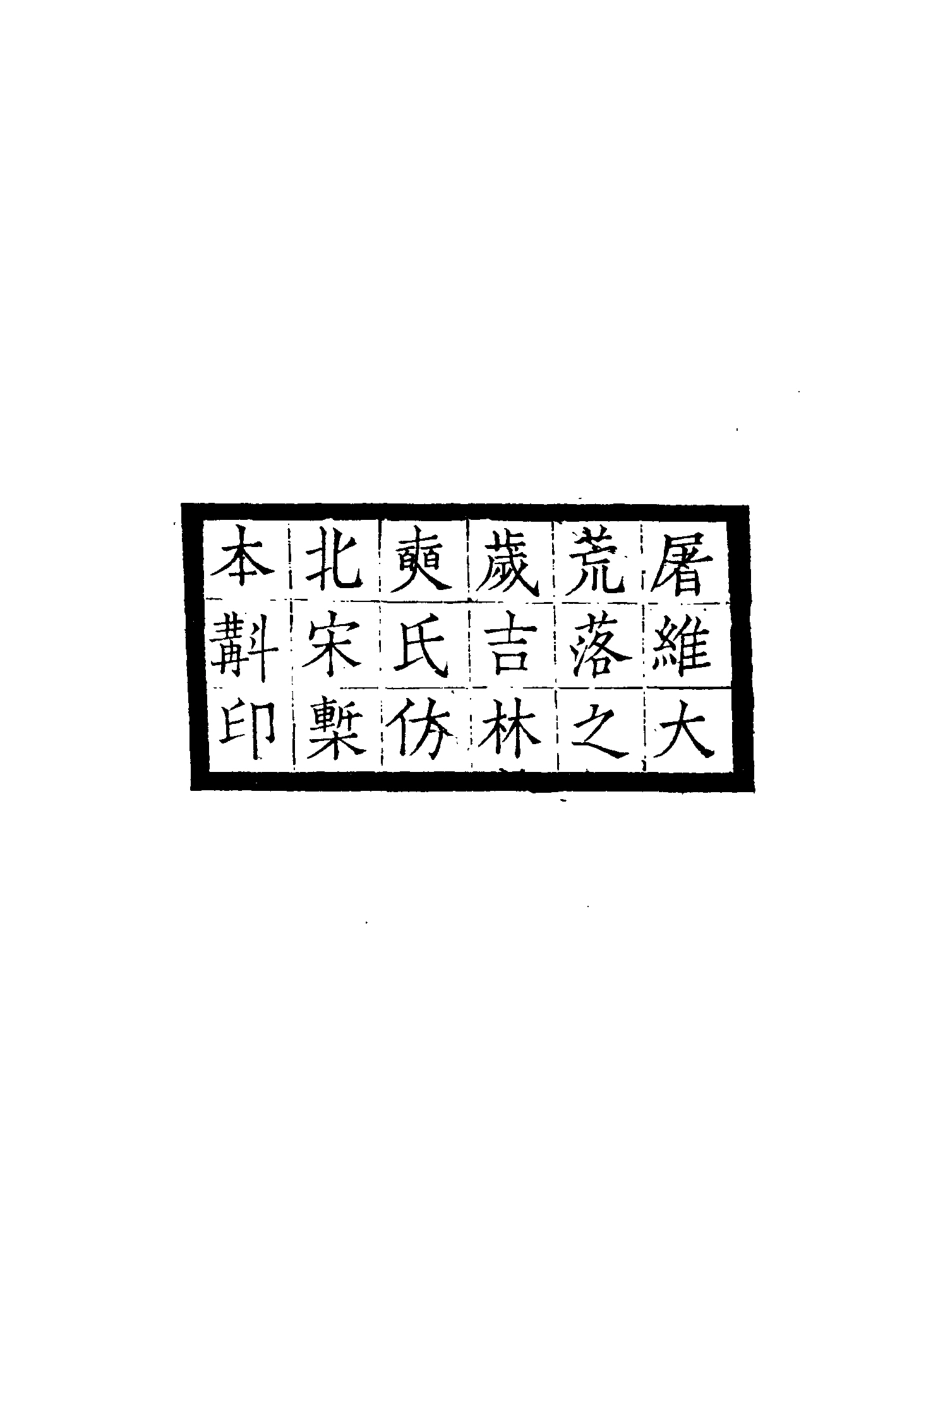 屠維大
荒落之
歲吉林
奭氏仿
北宋槧
本斠印